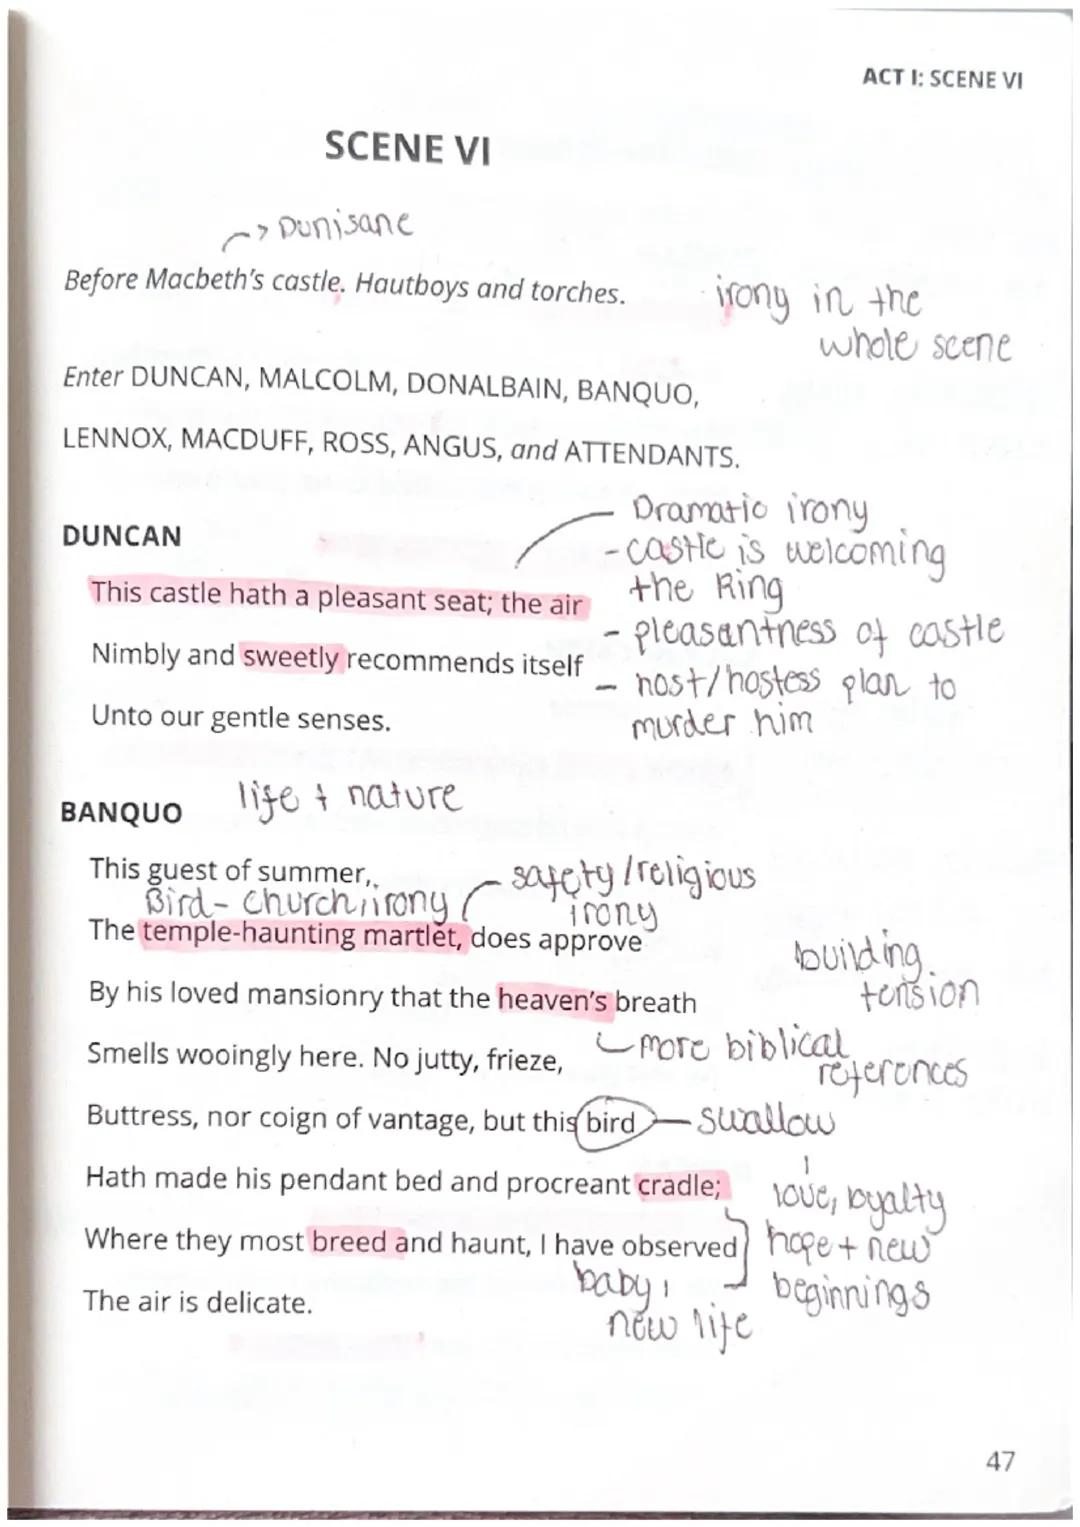 ACT I: SCENE VI
SCENE VI
→ Dunisane
Before Macbeth's castle. Hautboys and torches.
irony in the
whole scene
Enter DUNCAN, MALCOLM, DONALBAIN, BANQUO,
LENNOX, MACDUFF, ROSS, ANGUS, and ATTENDANTS.
Dramatic irony
- castle is welcoming
the King
- pleasantness of castle
- host/hostess plan to
murder him
DUNCAN
This castle hath a pleasant seat; the air
Nimbly and sweetly recommends itself
Unto our gentle senses.
life + nature
BANQUO
This guest of summer,
safety/religious
irony
Bird- church, irony
The temple-haunting martlet, does approve
building
tension
By his loved mansionry that the heaven's breath
more biblical
references
Smells wooingly here. No jutty, frieze,
Buttress, nor coign of vantage, but this bird - swallow
Hath made his pendant bed and procreant cradle;
love, loyalty
hope + new
beginnings
Where they most breed and haunt, I have observed
baby,
new life
The air is delicate.
47